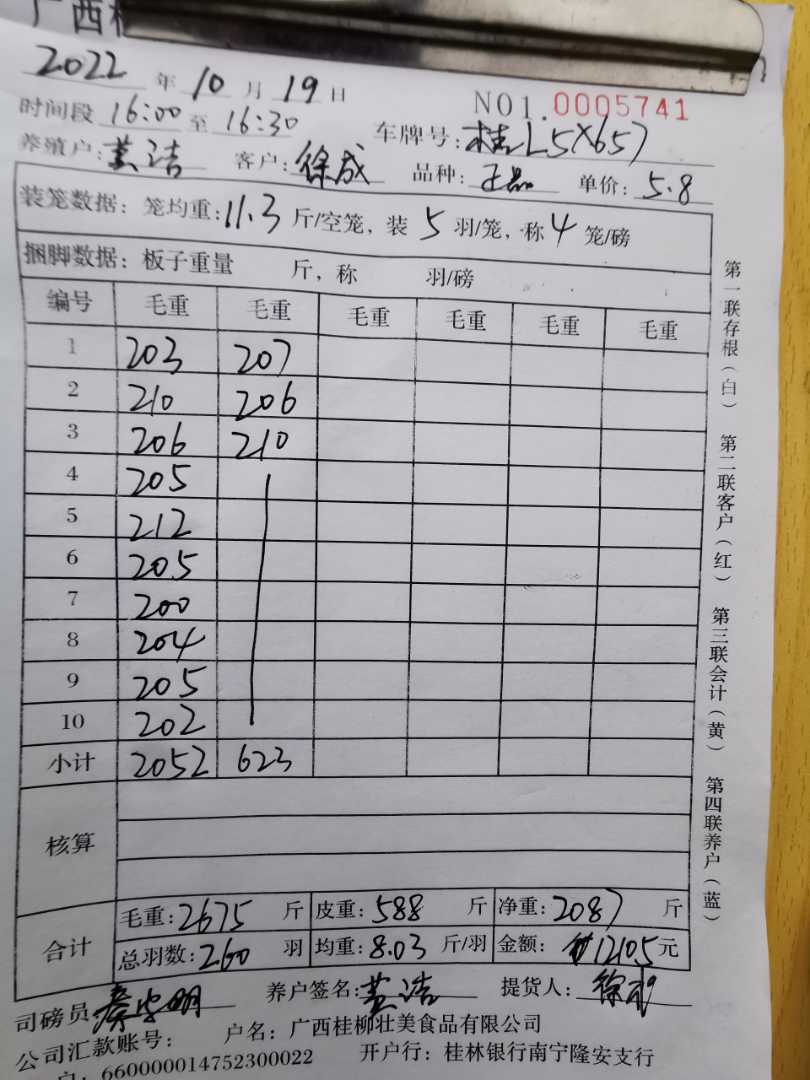 广西桂
2022 年 10 月 19 日
NO1.0005741
时间段 16:00 至 16:30 车牌号: 桂L5X657
养殖户: 黄洁 客户: 徐成 品种: 正品 单价: 5.8
装笼数据: 笼均重: 11.3 斤/空笼, 装 5 羽/笼, 称 4 笼/磅
捆脚数据: 板子重量 斤, 称 羽/磅
编号 毛重 毛重 毛重 毛重 毛重 毛重
1 203 207
2 210 206
3 206 210
4 205
5 212
6 205
7 200
8 204
9 205
10 202
小计 2052 623
核算
合计
毛重: 2675 斤 皮重: 588 斤 净重: 2087 斤
总羽数: 260 羽 均重: 8.03 斤/羽 金额: 12105 元
司磅员 养户签名: 黄洁 提货人: 徐成
公司汇款账号: 户名: 广西桂柳壮美食品有限公司
户: 660000014752300022 开户行: 桂林银行南宁隆安支行
第一联存根(白) 第二联客户(红) 第三联会计(黄) 第四联养户(蓝)